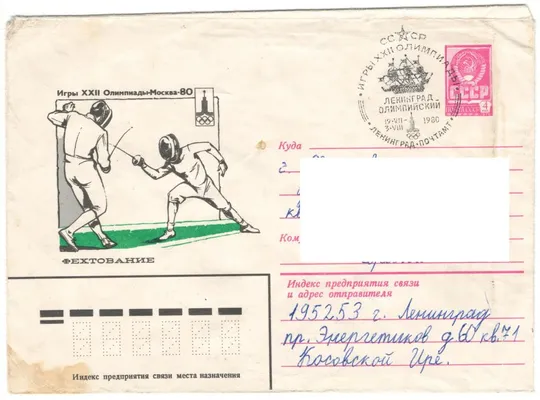 Игры XXII Олимпиады-Москва-80
СССР
ИГРЫ XXII ОЛИМПИАДЫ
ЛЕНИНГРАД-
ОЛИМПИЙСКИЙ
19-VII-
3-VIII 1980
ЛЕНИНГРАД-ПОЧТАМТ
СССР
4
Куда
г.
Кому
ФЕХТОВАНИЕ
Индекс предприятия связи
и адрес отправителя
195253 г. Ленинград
пр. Энергетиков д 60 кв. 71
Косовской Ире.
Индекс предприятия связи места назначения